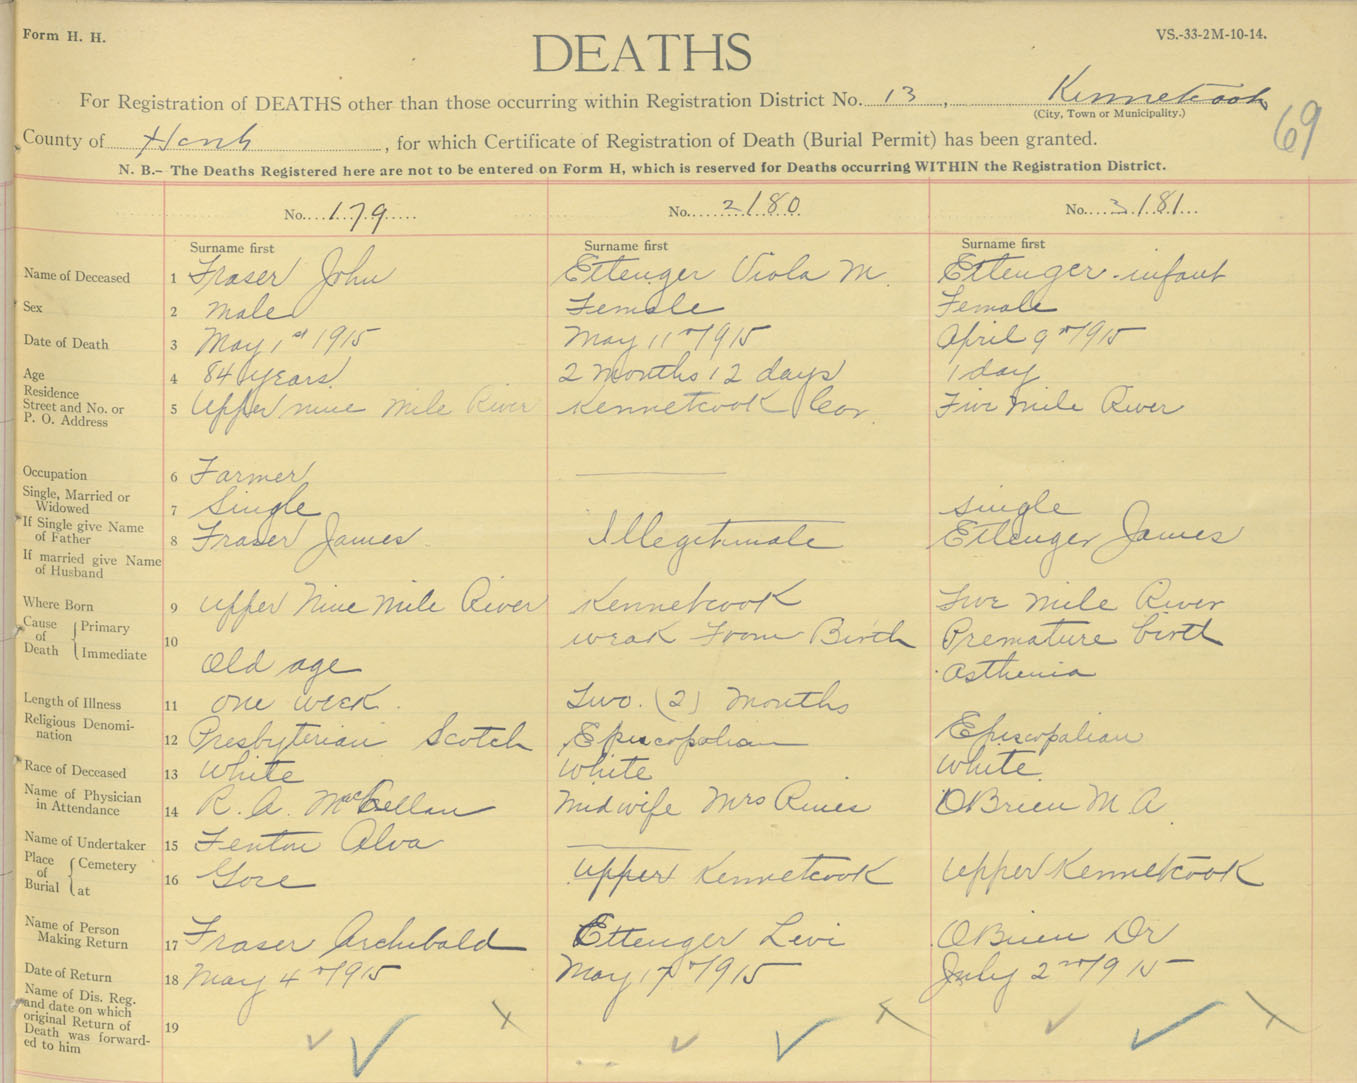 Form H. H.
VS.-33-2M-10-14.
DEATHS
For Registration of DEATHS other than those occurring within Registration District No. 13, Kennetcook
(City, Town or Municipality.)
69
County of Hants, for which Certificate of Registration of Death (Burial Permit) has been granted.
N. B.- The Deaths Registered here are not to be entered on Form H, which is reserved for Deaths occurring WITHIN the Registration District.
No. 179 No. 2180 No. 3181
Surname first Surname first Surname first
Name of Deceased 1 Fraser John Ettenger Viola M. Ettenger infant
Sex 2 Male Female Female
Date of Death 3 May 1st 1915 May 11th 1915 April 9th 1915
Age 4 84 years 2 months 12 days 1 day
Residence
Street and No. or
P. O. Address 5 Upper nine mile River Kennetcook Cor. Five mile River
Occupation 6 Farmer
Single, Married or
Widowed 7 Single single
If Single give Name
of Father 8 Fraser James Illegetimate Ettenger James
If married give Name
of Husband
Where Born 9 Upper Nine Mile River Kennetcook Five mile River
Cause of Death Primary 10 weak From Birth Premature birth
Immediate Old age Asthenia
Length of Illness 11 one week. Two (2) months
Religious Denomi-
nation 12 Presbyterian Scotch Episcopalian Episcopalian
Race of Deceased 13 White White White
Name of Physician
in Attendance 14 R. A. Midwife Mrs OBrien M A
Name of Undertaker 15 Fenton Alva
Place of Burial Cemetery at 16 Gore Upper Kennetcook Upper Kennetcook
Name of Person
Making Return 17 Fraser Archibald Ettenger Levi OBrien Dr
Date of Return 18 May 4th 1915 May 17th 1915 July 2nd 1915
Name of Dis. Reg.
and date on which
original Return of
Death was forward-
ed to him 19